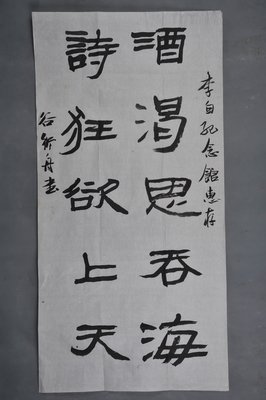 李白纪念馆惠存
酒渴思吞海
詩狂欲上天
谷牧舟书